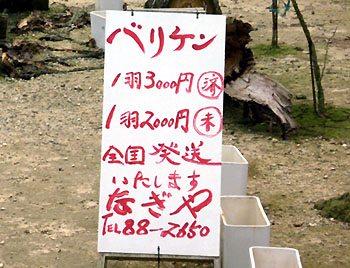 バリケン
1羽3000円 済
1羽2000円 未
全国発送
いたします
なぎや
TEL88-2650